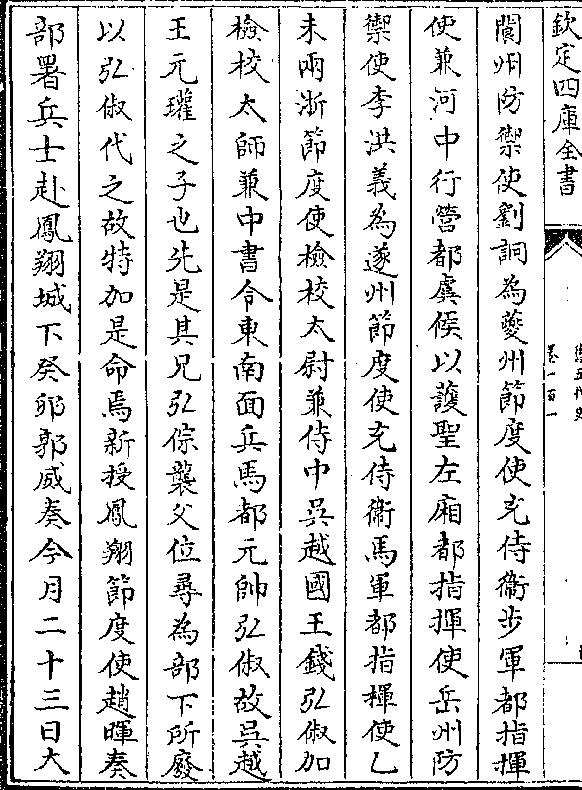 欽定四庫全書
卷一百一
閬州防禦使劉詞為夔州節度使充侍衞步軍都指揮
使兼河中行營都虞候以護聖左廂都指揮使岳州防
禦使李洪義為遂州節度使充侍衞馬軍都指揮使乙
未兩浙節度使檢校太尉兼侍中吳越國王錢弘俶加
檢校太師兼中書令東南面兵馬都元帥弘俶故吳越
王元瓘之子也先是其兄弘倧襲父位尋為部下所廢
以弘俶代之故特加是命焉新授鳳翔節度使趙暉奏
部署兵士赴鳳翔城下癸卯郭威奏今月二十三日大